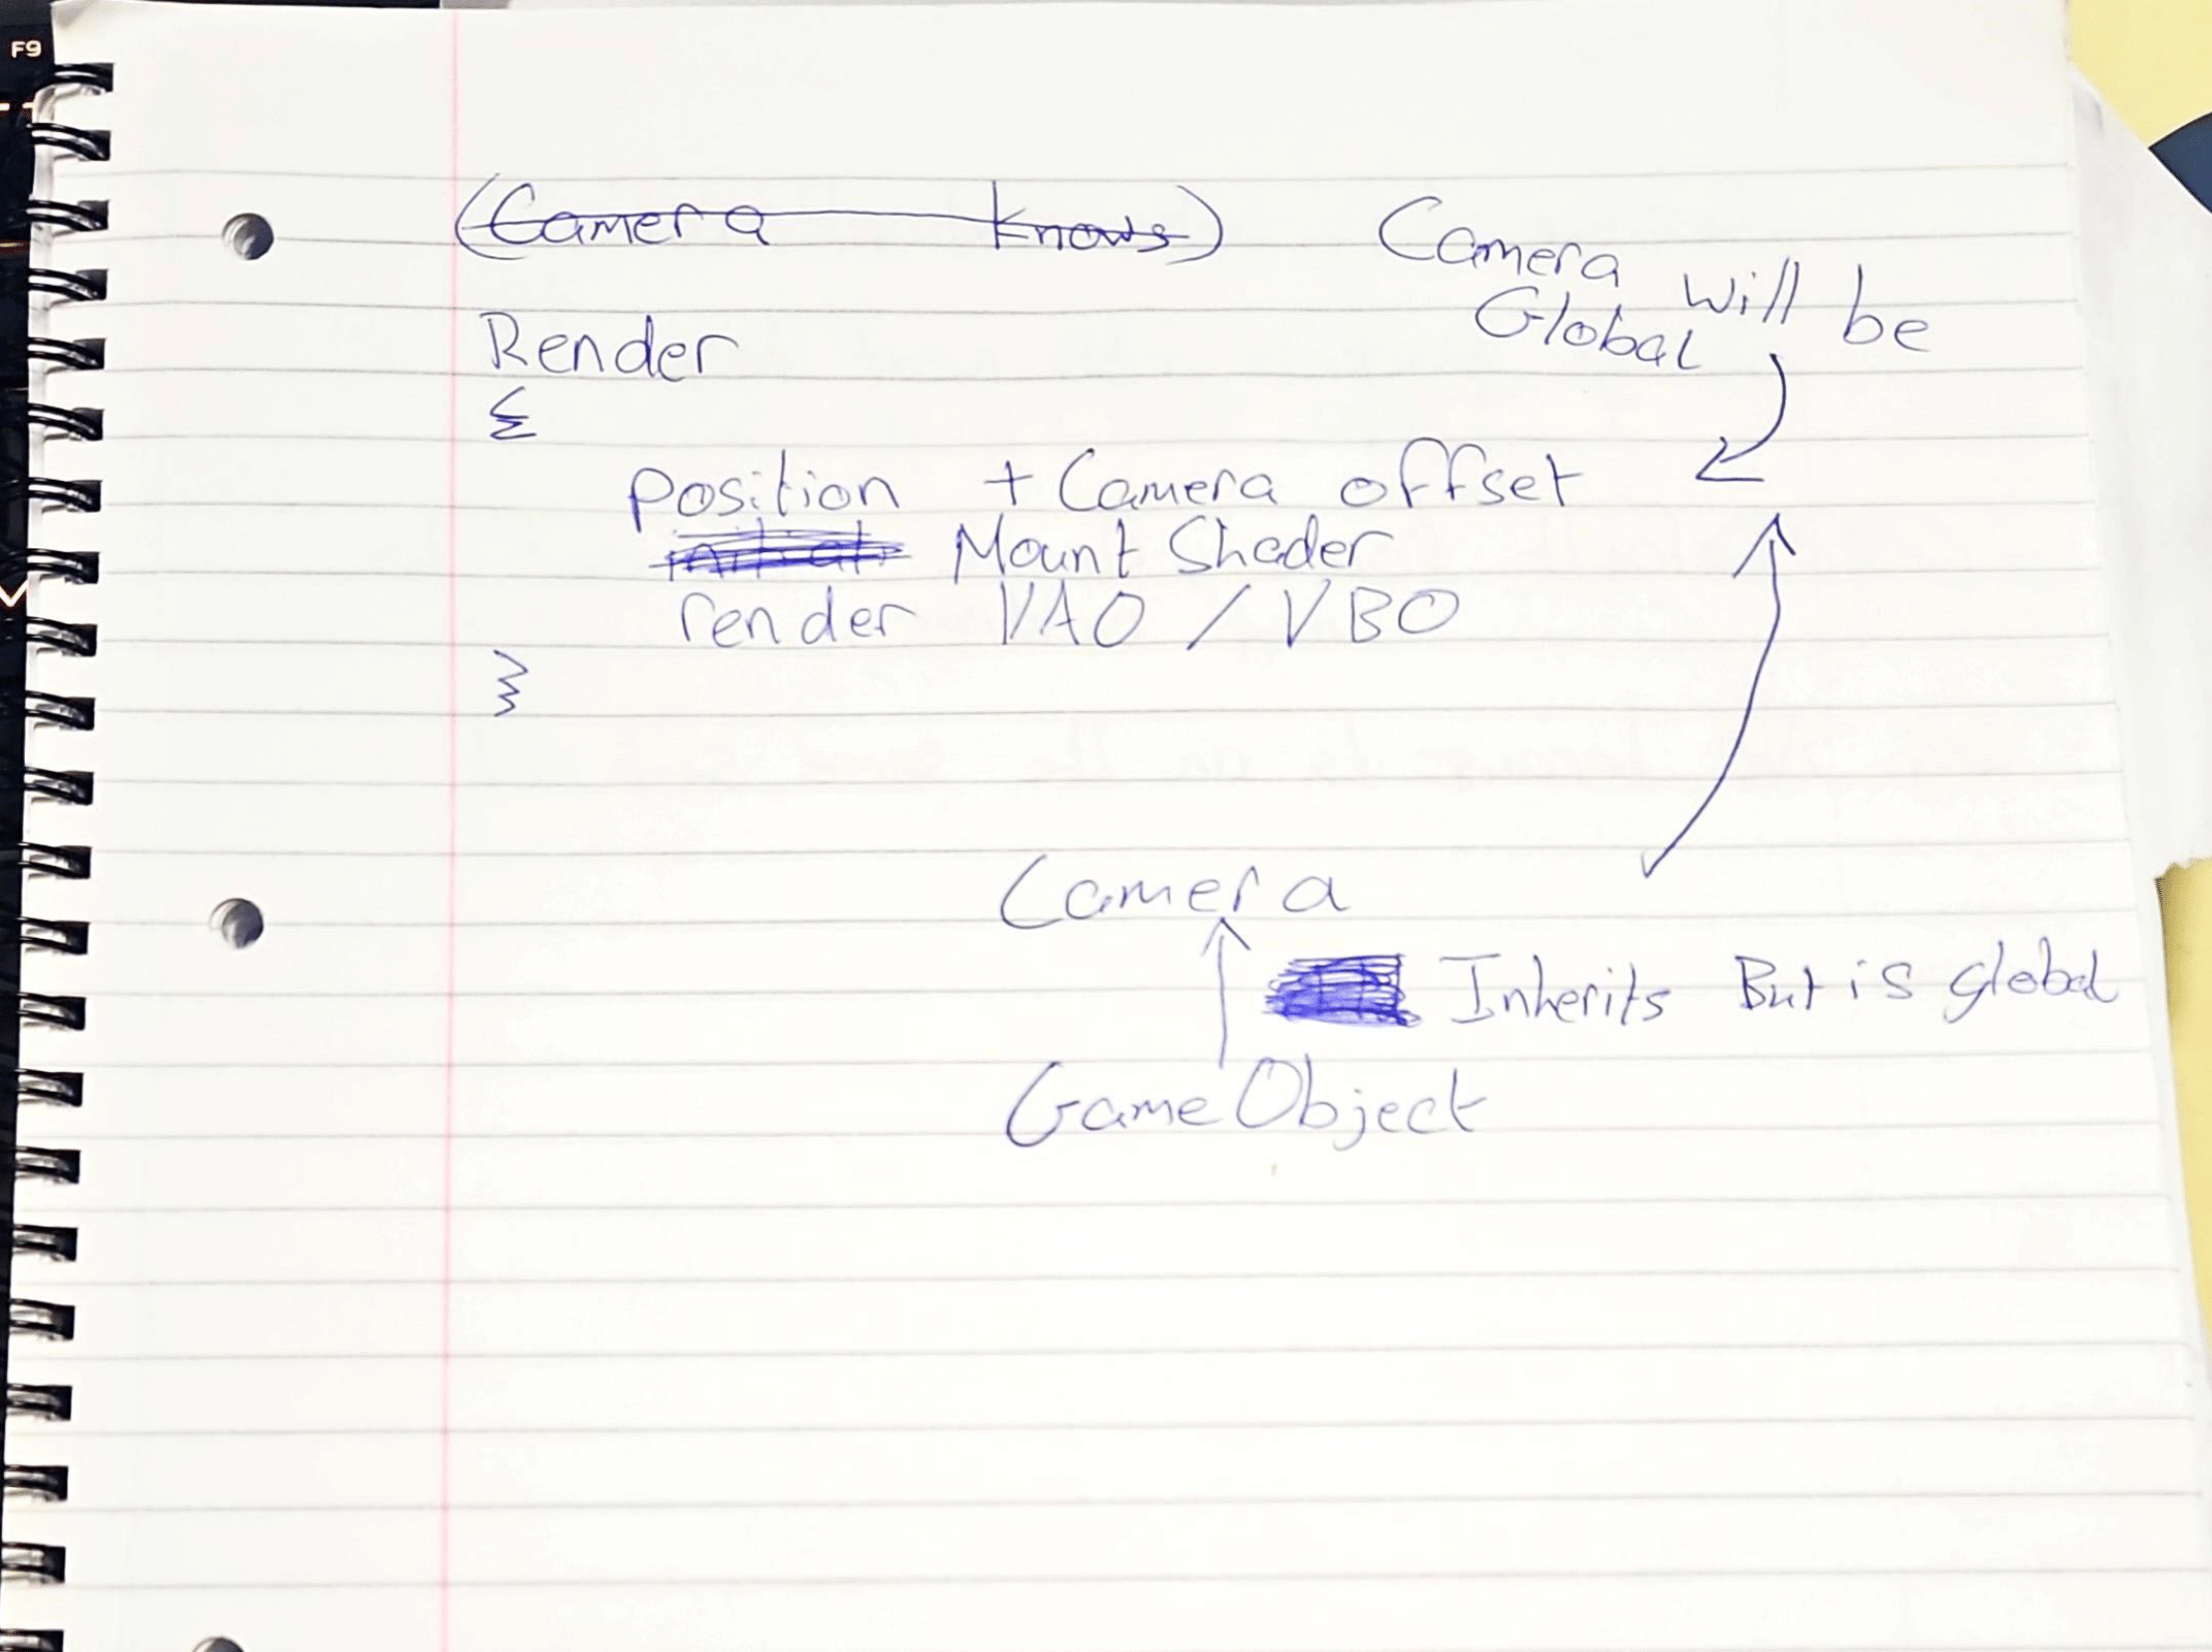 F9
(Camera knows)
Camera will be
Global
Render
{
position + Camera offset
Mount Shader
render VAO / VBO
}
Camera
Inherits But is global
GameObject